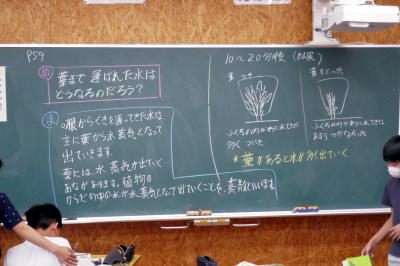 P59
め 葉まで運ばれた水は
どうなるのだろう?
ま 根からくきを通ってきた水は
主に葉から水蒸気となって
出ていきます。
葉には、水蒸気が出ていく
あながあります。植物の
からだの中の水が水蒸気となって出ていくことを、蒸散といいます。
10〜20分後(結果)
葉つき
ふくろの内がわに水てきが
多くついた
葉をとった
ふくろの内がわに水てきが
あまりつかなかった
*葉があると水が多く出ていく